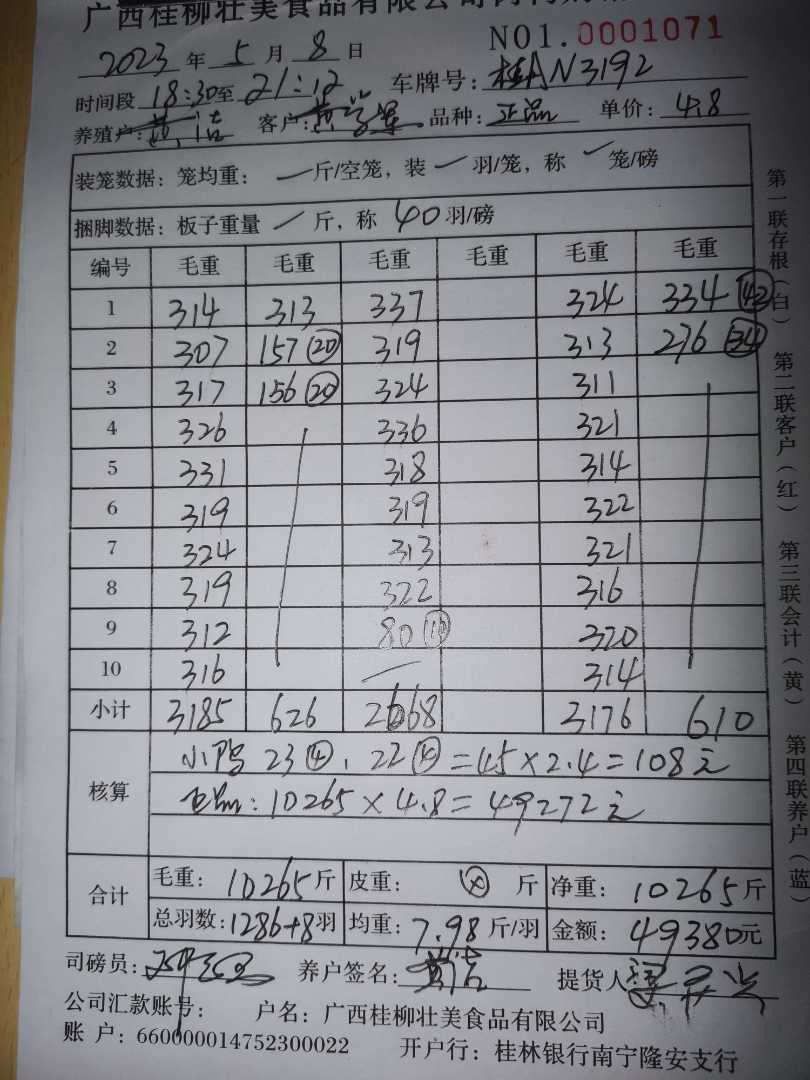 广西桂柳壮美食品有限公司
NO1.0001071
2023 年 5 月 8 日
时间段 18:30至 21:12 车牌号: 桂AN3192
养殖户: 黄洁 客户: 品种: 正品 单价: 4.8
装笼数据: 笼均重: 一斤/空笼, 装 一 羽/笼, 称 笼/磅
捆脚数据: 板子重量 / 斤, 称 40羽/磅
编号 毛重 毛重 毛重 毛重 毛重 毛重
1 314 313 337 324 334 (42)
2 307 157 (20) 319 313 276 (34)
3 317 156 (20) 324 311
4 326 336 321
5 331 318 314
6 319 319 322
7 324 313 321
8 319 322 316
9 312 80 (10) 320
10 316 314
小计 3185 626 2668 3176 610
核算 小鸭 23 (4), 22 (4) = 45 × 2.4 = 108元
正品: 10265 × 4.8 = 49272元
合计 毛重: 10265斤 皮重: 斤 净重: 10265斤
总羽数: 1286+8羽 均重: 7.98 斤/羽 金额: 49380元
司磅员: 养户签名: 黄洁 提货人
公司汇款账号: 户名: 广西桂柳壮美食品有限公司
账 户: 660000014752300022 开户行: 桂林银行南宁隆安支行
第一联存根(白) 第二联客户(红) 第三联会计(黄) 第四联养户(蓝)